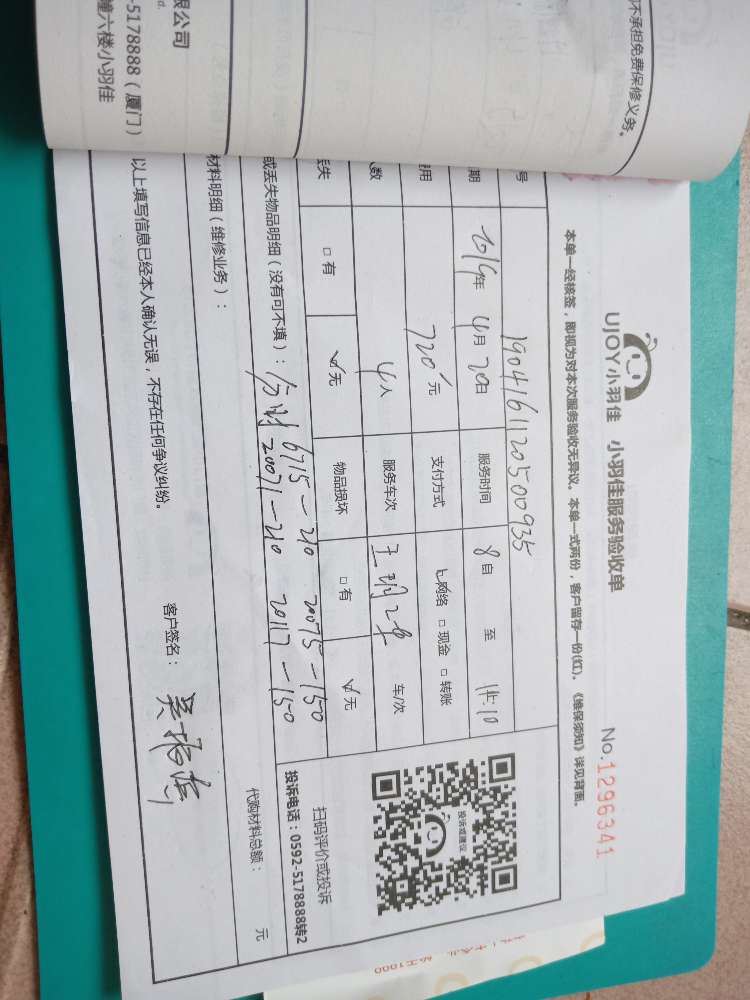 不承担免费保修义务。
限公司
-5178888（厦门）
幢六楼小羽佳
UJOY小羽佳 小羽佳服务验收单
No.1296341
本单一经核签，即视为对本次服务验收无异议。本单一式两份，客户留存一份(红)。《维保须知》详见背面。
号 1904161120500935
期 2019年 4月 20日 服务时间 8自 至 14:10
用 720元 支付方式 网络 □现金 □转账
数 4人 服务车次 车/次
丢失 □有 ☑无 物品损坏 □有 ☑无
或丢失物品明细（没有可不填）：分财 6715-210 20075-150
20071-210 20117-150
材料明细（维修业务）：
代购材料总额： 元
投诉或建议
扫码评价或投诉
投诉电话：0592-5178888转2
以上填写信息已经本人确认无误，不存在任何争议纠纷。
客户签名：